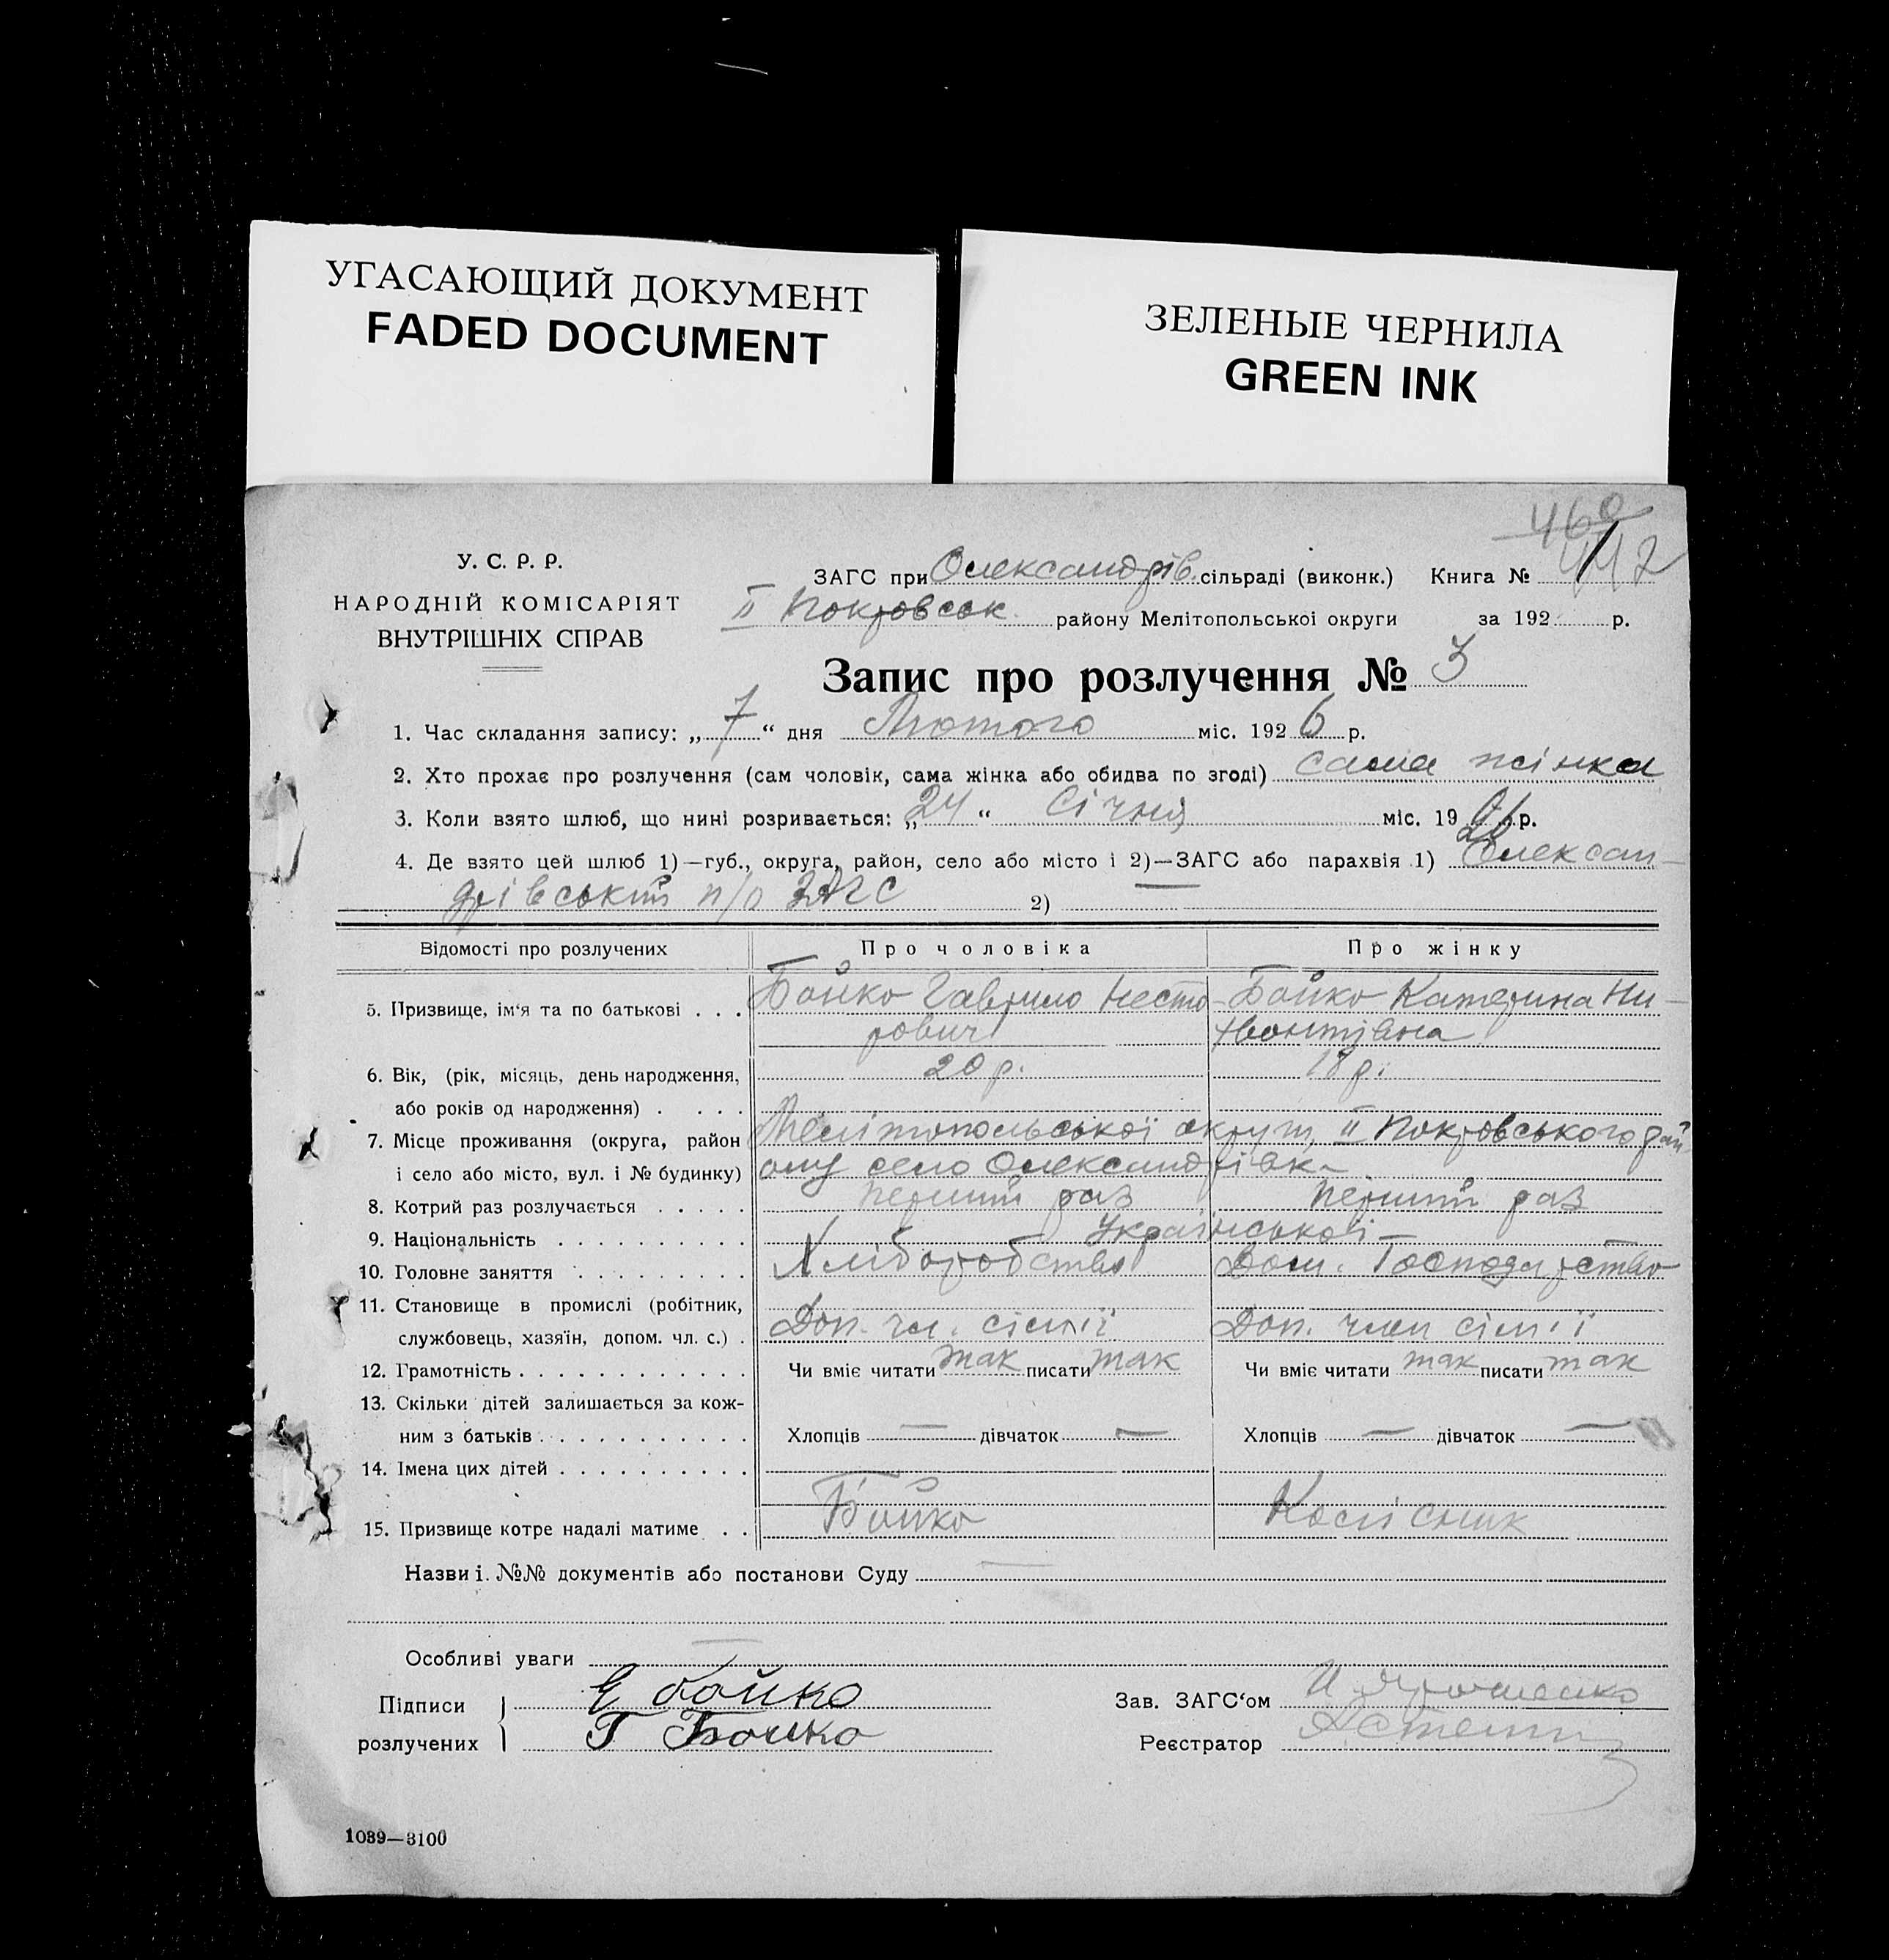 УГАСАЮЩИЙ ДОКУМЕНТ
FADED DOCUMENT
ЗЕЛЕНЫЕ ЧЕРНИЛА
GREEN INK
460
442
У. С. Р. Р.
НАРОДНІЙ КОМІСАРІЯТ
ВНУТРІШНІХ СПРАВ
ЗАГС при Олександрів. сільраді (виконк.) Книга №
II Покровськ району Мелітопольської округи за 192 р.
Запис про розлучення № 3
1. Час складання запису: „7“ дня Лютого міс. 1926 р.
2. Хто прохає про розлучення (сам чоловік, сама жінка або обидва по згоді) сама жінка
3. Коли взято шлюб, що нині розривається: „24“ Січня міс. 19 р.
4. Де взято цей шлюб 1)—губ., округа, район, село або місто і 2)—ЗАГС або парахвія 1) Олексан-
дрівський п/о ЗАГС 2) —
Відомості про розлучених Про чоловіка Про жінку
5. Призвище, ім'я та по батькові . . . Бойко Гаврило Несто- Бойко Катерина Ни-
рович
6. Вік, (рік, місяць, день народження, 20 р. 18 р.
або років од народження) . . . .
7. Місце проживання (округа, район Мелітопольської округи, II Покровського рай-
і село або місто, вул. і № будинку) ону село Олександрівка
8. Котрий раз розлучається . . . . . перший раз перший раз
9. Національність . . . . . . . . . . Української
10. Головне заняття . . . . . . . . . Хліборобство Дом. Господарство
11. Становище в промислі (робітник,
службовець, хазяїн, допом. чл. с.) . Доп. чл. сім'ї Доп. член сім'ї
12. Грамотність . . . . . . . . . . . . Чи вміє читати так писати так Чи вміє читати так писати так
13. Скільки дітей залишається за кож-
ним з батьків . . . . . . . . . . . Хлопців — дівчаток — Хлопців — дівчаток —
14. Імена цих дітей . . . . . . . . . .
15. Призвище котре надалі матиме . . Бойко Колісник
Назви і №№ документів або постанови Суду —
Особливі уваги —
Підписи Е Бойко Зав. ЗАГС'ом
розлучених Г Бойко Реєстратор
1039—3100